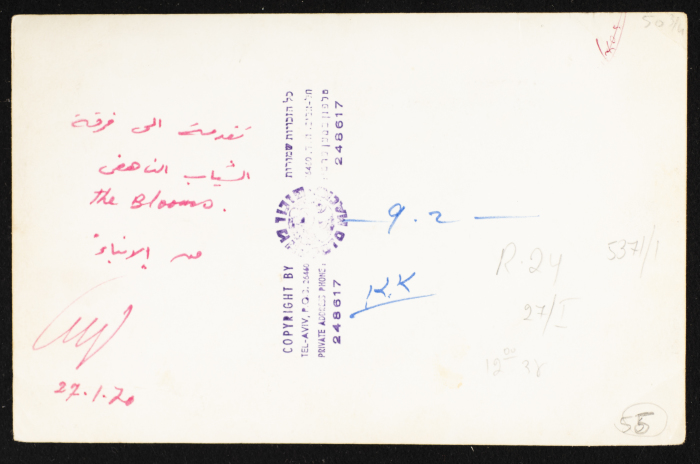 تقدمة الى فرقة
الشباب الناهض
the Blooms.
من الانباء
27.1.70
כל הזכויות שמורות
248617
COPYRIGHT BY
TEL-AVIV, P.O.B. 26440
PRIVATE ADDRESS PHONE:
248617
9.2
K.K
R.24
27/I
5371/1
12⁰⁰
50
55